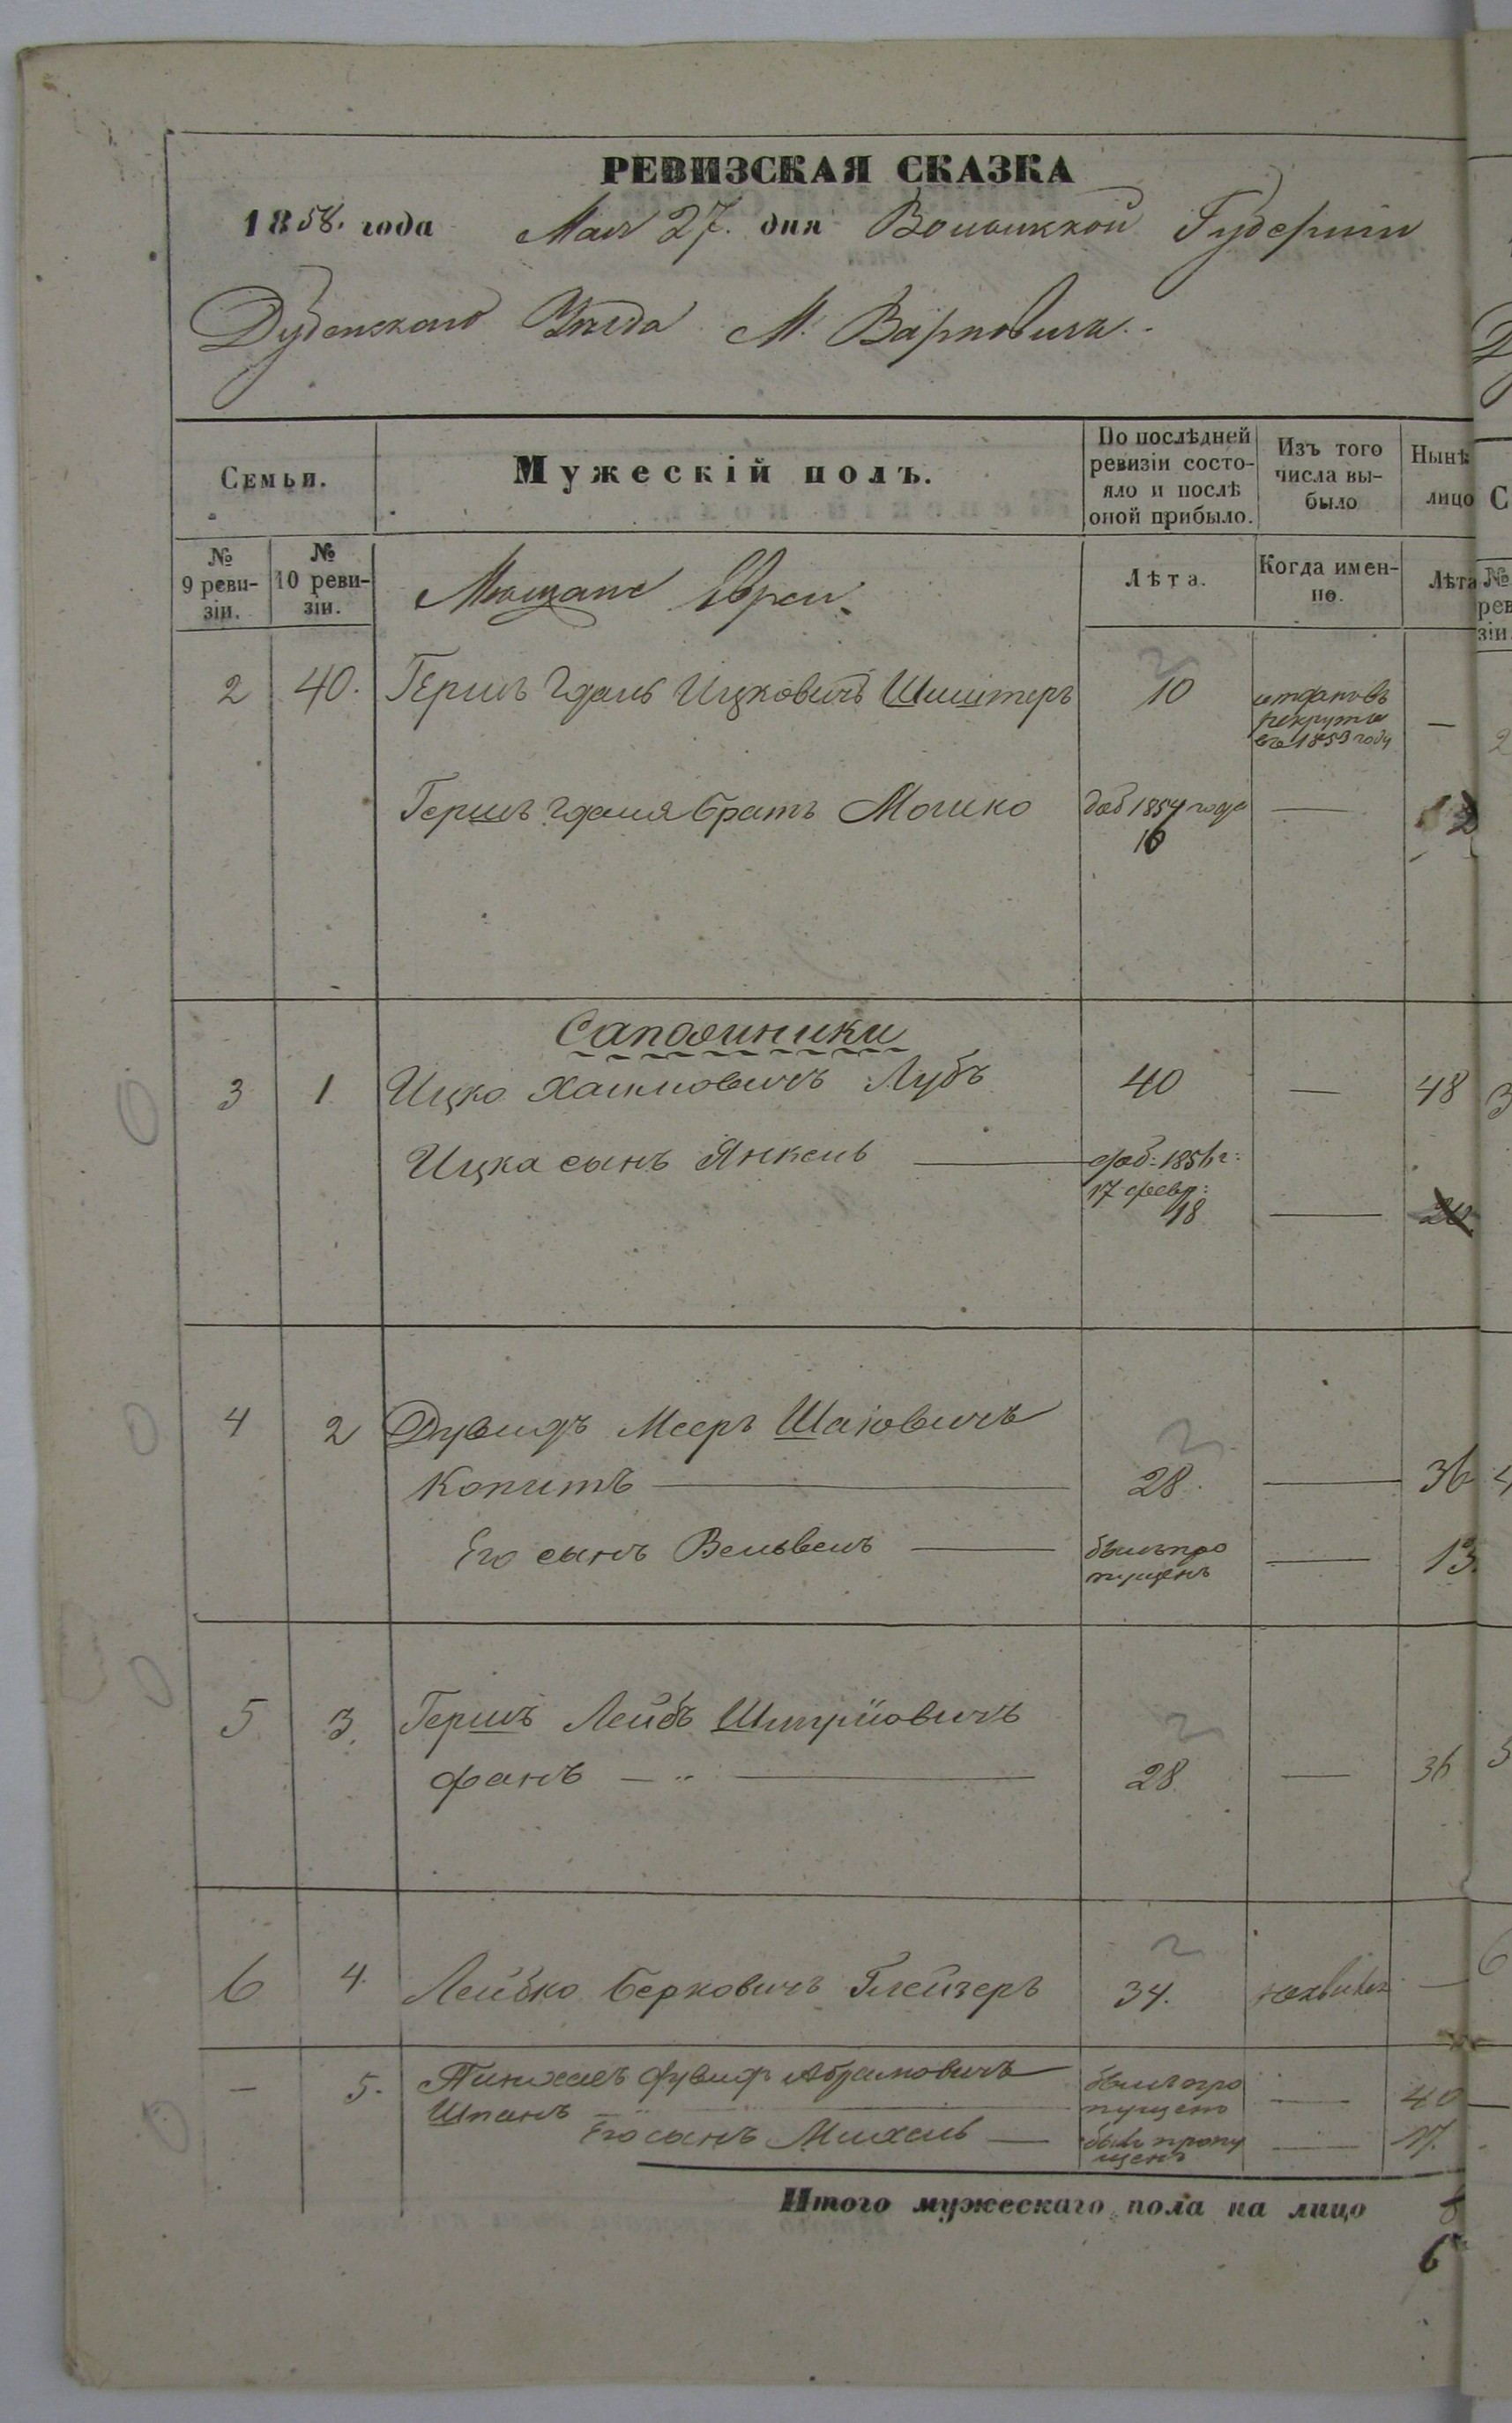 РЕВИЗСКАЯ СКАЗКА
1858. года Мая 27. дня Волынской Губернии
Дубенскаго Уѣзда М. Варковичь.
Семьи.
Мужескій полъ.
По послѣдней ревизіи состо-
яло и послѣ
оной прибыло.
Изъ того
числа вы-
было
Нынѣ
лицо
№
9 реви-
зіи.
№
10 реви-
зіи.
Мѣщане Евреи.
Лѣта.
Когда имен-
но.
Лѣта
2 40. Гершъ Гдаль Ицковичъ Шустеръ 10 рекруты 1853 году —
Гершъ Гдаля братъ Мошко доб 1854 года 16 —
Сапожники
3 1 Ицко Хаимовичъ Лубъ 40 — 48
Ицка сынъ Янкель — доб: 1856 г:
17 февр:
18 —
4 2 Дувидъ Мееръ Шаювичъ
Копитъ — 28. — 36
Его сынъ Вельвель — былъ про
пущенъ — 13.
5 3. Гершъ Лейбъ
фанъ — 28 — 36
6 4. Лейбко Берковичъ Глейзеръ 34. —
— 5. Пинхасъ Дувидъ Абрамовичъ былъ про
Шпанъ — пущенъ — 40
Его сынъ Михель — былъ пропу
щенъ — 17.
Итого мужескаго пола на лицо
6